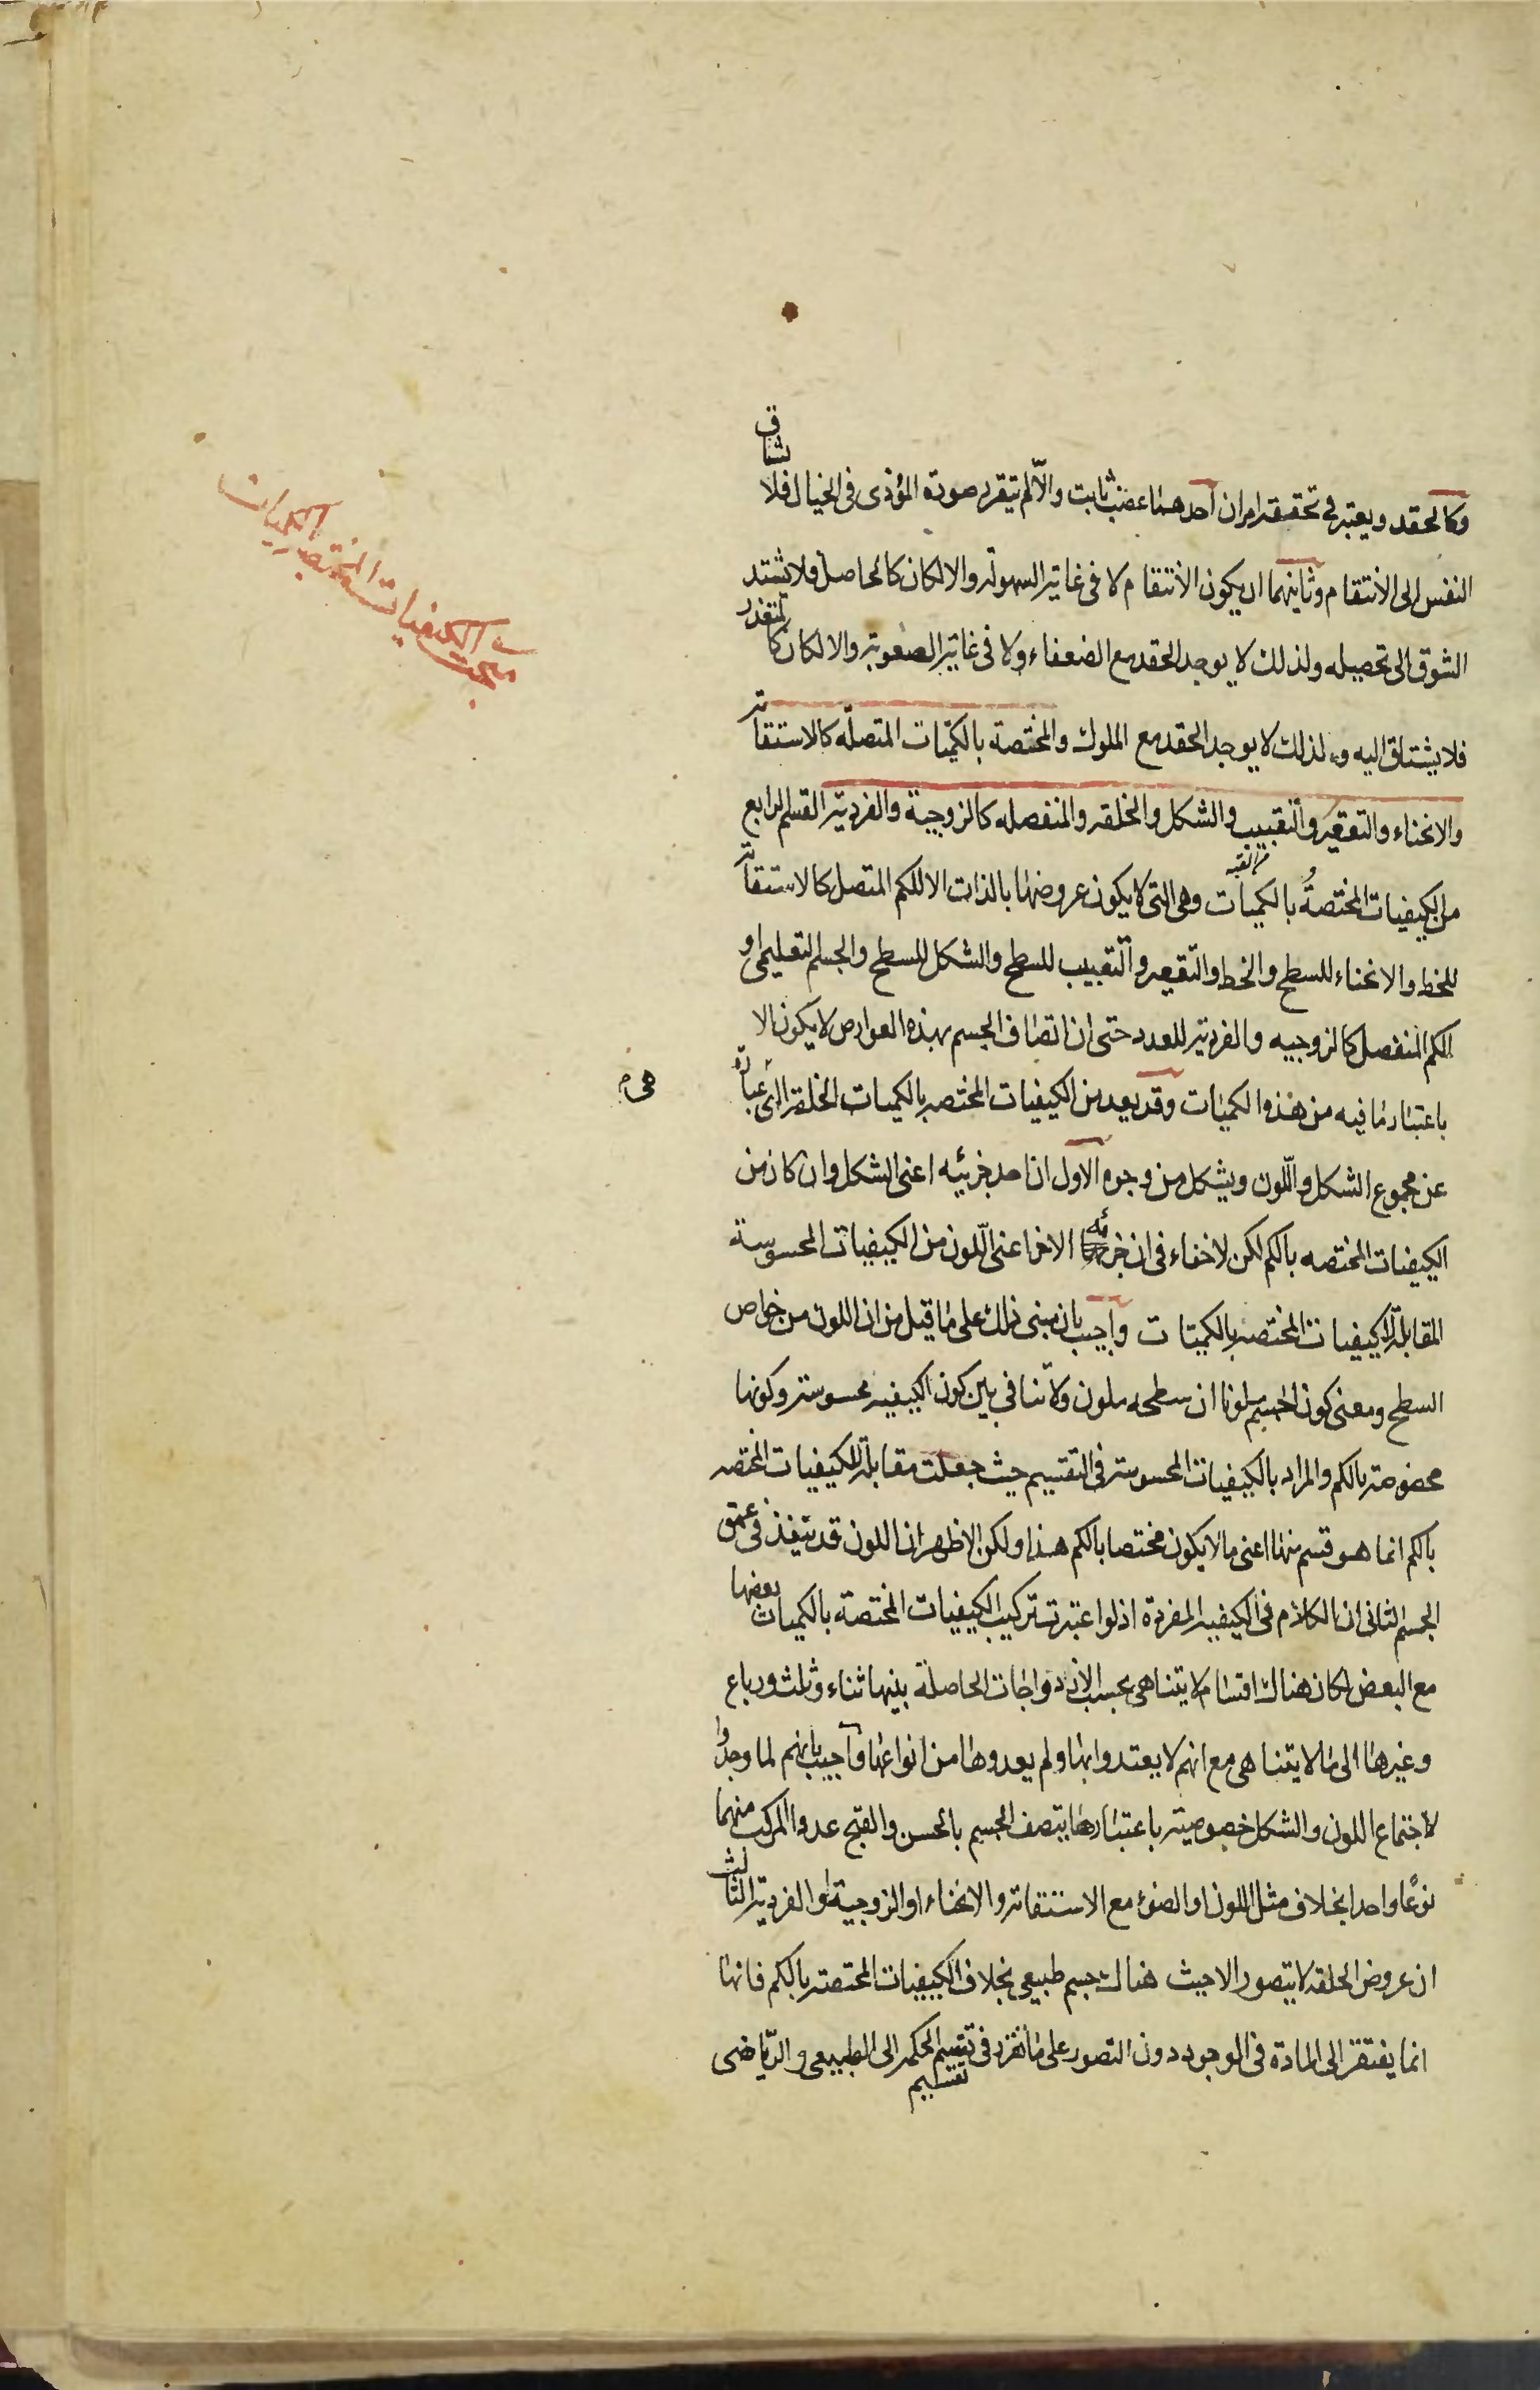 وكالحقد ويعتبر فى تحققه امران احدهما غضب ثابت والّا لم يتقرر صورة المؤذى فى الخيال فلا تشتاق
النفس الى الانتقام وثانيهما ان يكون الانتقام لا فى غاية السهولة والا لكان كالحاصل فلا يشتد
الشوق الى تحصيله ولذلك لا يوجد الحقد مع الضعفاء ولا فى غاية الصعوبة والا لكان كالمتعذر
فلا يشتاق اليه ولذلك لا يوجد الحقد مع الملوك والمختصة بالكميّات المتصلّه كالاستقامة
والانحناء والتقعير والتقبيب والشكل والخلقه والمنفصله كالزوجية والفردية القسم الرابع
من الكيفيات المختصةُ بالكميات وهى التى لا يكون عروضها بالذات الا للكم المتصل كالاستقامة
للخط والانحناء للسطح والخط والتقعير والتقبيب للسطح والشكل للسطح والجسم التعليمى او
الكم المنفصل كالزوجيه والفردية للعدد حتى ان اتصاف الجسم بهذه العوارض لا يكون الا
باعتبار ما فيه من هذه الكميات وقد يعد من الكيفيات المختصه بالكميات الخلقة التى عبارة
هى م
عن مجموع الشكل واللّون ويشكل من وجوه الاول ان احد جزئيه اعنى الشكل وان كان من
الكيفيات المختصه بالكم لكن لا خفاء فى ان جزئه الاخر اعنى اللّون من الكيفيات المحسوسة
المقابلة للكيفيات المختصه بالكميّات واجيب بان مبنى ذلك على ما قيل من ان اللون من خواص
السطح ومعنى كون الجسم ملونا ان سطحه ملون ولا تنافى بين كون الكيفيه محسوسة وكونها
مخصوصة بالكم والمراد بالكيفيات المحسوسة فى التقسيم حيث جعلت مقابلة للكيفيات المختصه
بالكم انما هو قسم منها اعنى ما لا يكون مختصا بالكم هذا ولكن الاظهر ان اللون قد ينفذ فى عمق
الجسم الثانى ان الكلام فى الكيفيه المفردة اذ لو اعتبرت تركيب الكيفيات المختصة بالكميات بعضها
مع البعض لكان هناك اقسام لا يتناهى بحسب الازدواجات الحاصلة بينها ثناء وثلث ورباع
وغيرها الى ما لا يتناهى مع انهم لا يعتدوا بها ولم يعدوها من انواعها واجيب بانهم لما وجدوا
لاجتماع اللون والشكل خصوصية باعتبارها يتصف الجسم بالحسن والقبح عدوا المركب منهما
نوعًا واحدا بخلاف مثل اللون او الضوء مع الاستقامة والانحناء او الزوجية او الفردية الثالث
ان عروض الخلقه لا يتصور الا حيث هناك جسم طبيعى بخلاف الكيفيات المختصة بالكم فانها
انما يفتقر الى المادة فى الوجود دون التصور على ما تقرر فى تقسيم الحكمة الى الطبيعى والرّياضى
تقسيم
مبحث الكيفيات المختصة بالكميات